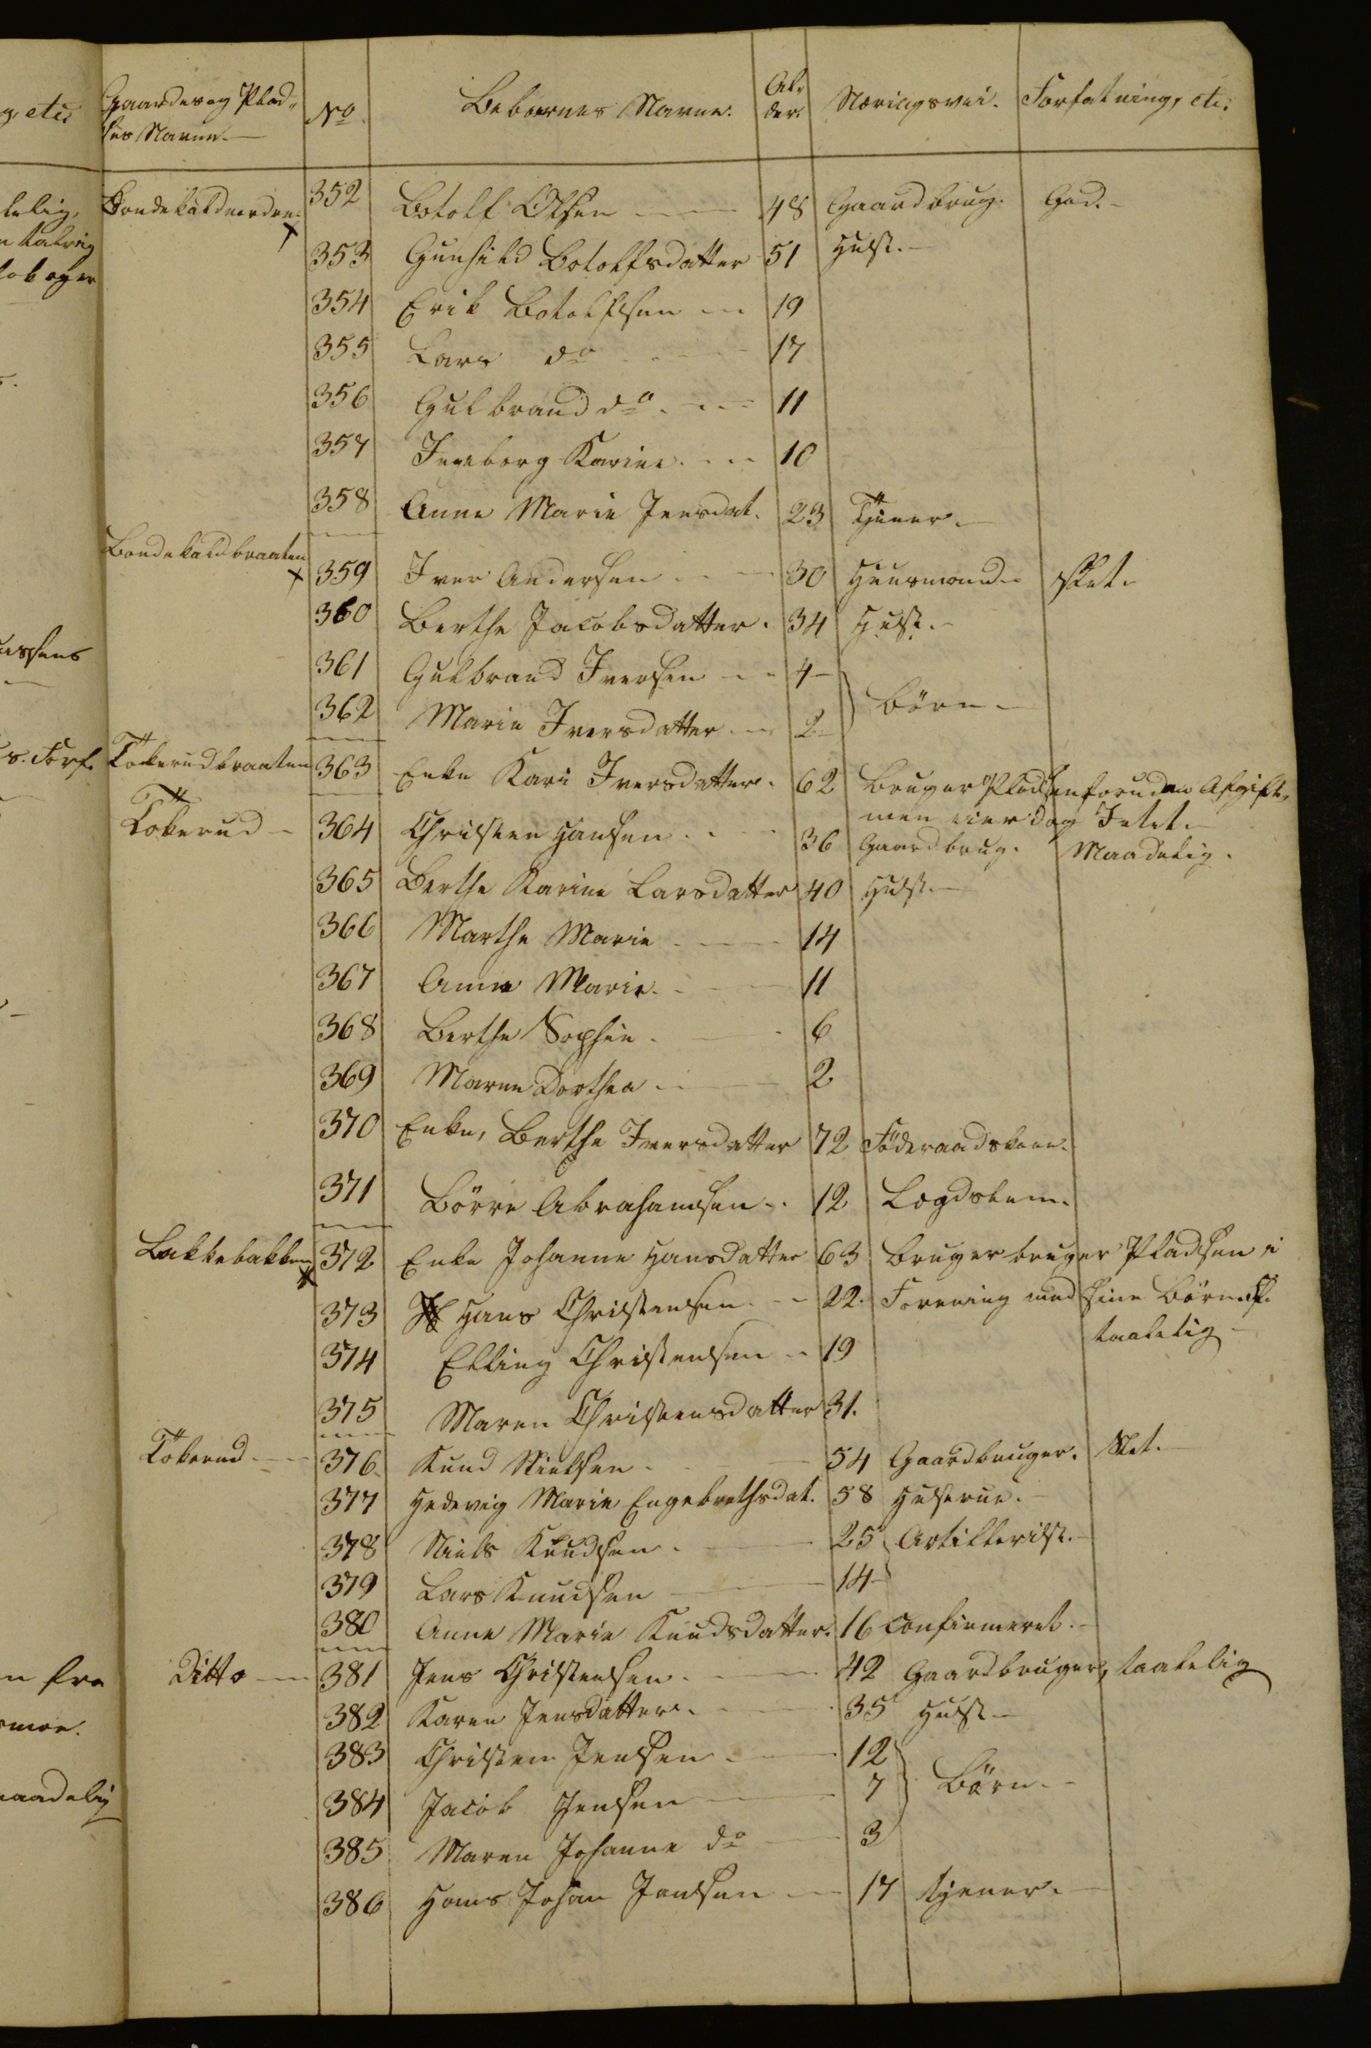 Gaardes og Plad-
ses Navne.
No
Beboernes Navne.
Al-
der
Næringsvei.
Forfatning, etc:
g, etc:
Bondekaldnordre 352 Botolf Olsen 48 Gaardbrug. God.
353 Gunhild Botolfsdatter 51 Hust.
354 Erik Botolfsen 19
355 Lars do 17
356 Gulbrand do 11
357 Ingeborg Karine 10
358 Anne Marie Jensdat. 23 Tjener.
Bondekaldbraaten 359 Iver Andersen 30 Huusmand slet.
360 Berthe Jacobsdatter. 34 Hust.
361 Gulbrand Iversen 4
Börn
362 Marie Iversdatter 2
Tokerudbraaten 363 Enke Kari Iversdatter. 62 Bruger Pladsen foruden Afgift,
men eier dog Intet.
Tokerud 364 Christen Hansen 36 Gaardbrug. Maadelig.
365 Berthe Karine Larsdatter 40 Hust.
366 Marthe Marie 14
367 Anne Marie 11
368 Berthe Sophie 6
369 Maren Dorthea 2
370 Enke, Berthe Iversdatter 72 Föderaadskone.
371 Börre Abrahamsen 12 Lægdslem.
Lakkebakken 372 Enke Johanne Hansdatter 63 bruger bruger Pladsen i
373 Hans Christensen 22. Forening med sine Börn.
taalelig
374 Elling Christensen 19
375 Maren Christensdatter 31.
Tokerud 376 Knud Nielsen 54 Gaardbruger. Slet.
377 Hedevig Marie Engebrethsdat. 58 Hustrue.
378 Niels Knudsen 25 Artillerist.
379 Lars Knudsen 14
380 Anne Marie Knudsdatter. 16 Confirmeret.
Ditto 381 Jens Christensen 42 Gaardbruger, taalelig
382 Karen Jensdatter. 35 Hust
383 Christen Jensen 12
Börn
384 Jacob Jensen 7
385 Maren Johanne do 3
386 Hans Johan Jensen 17 tjener.